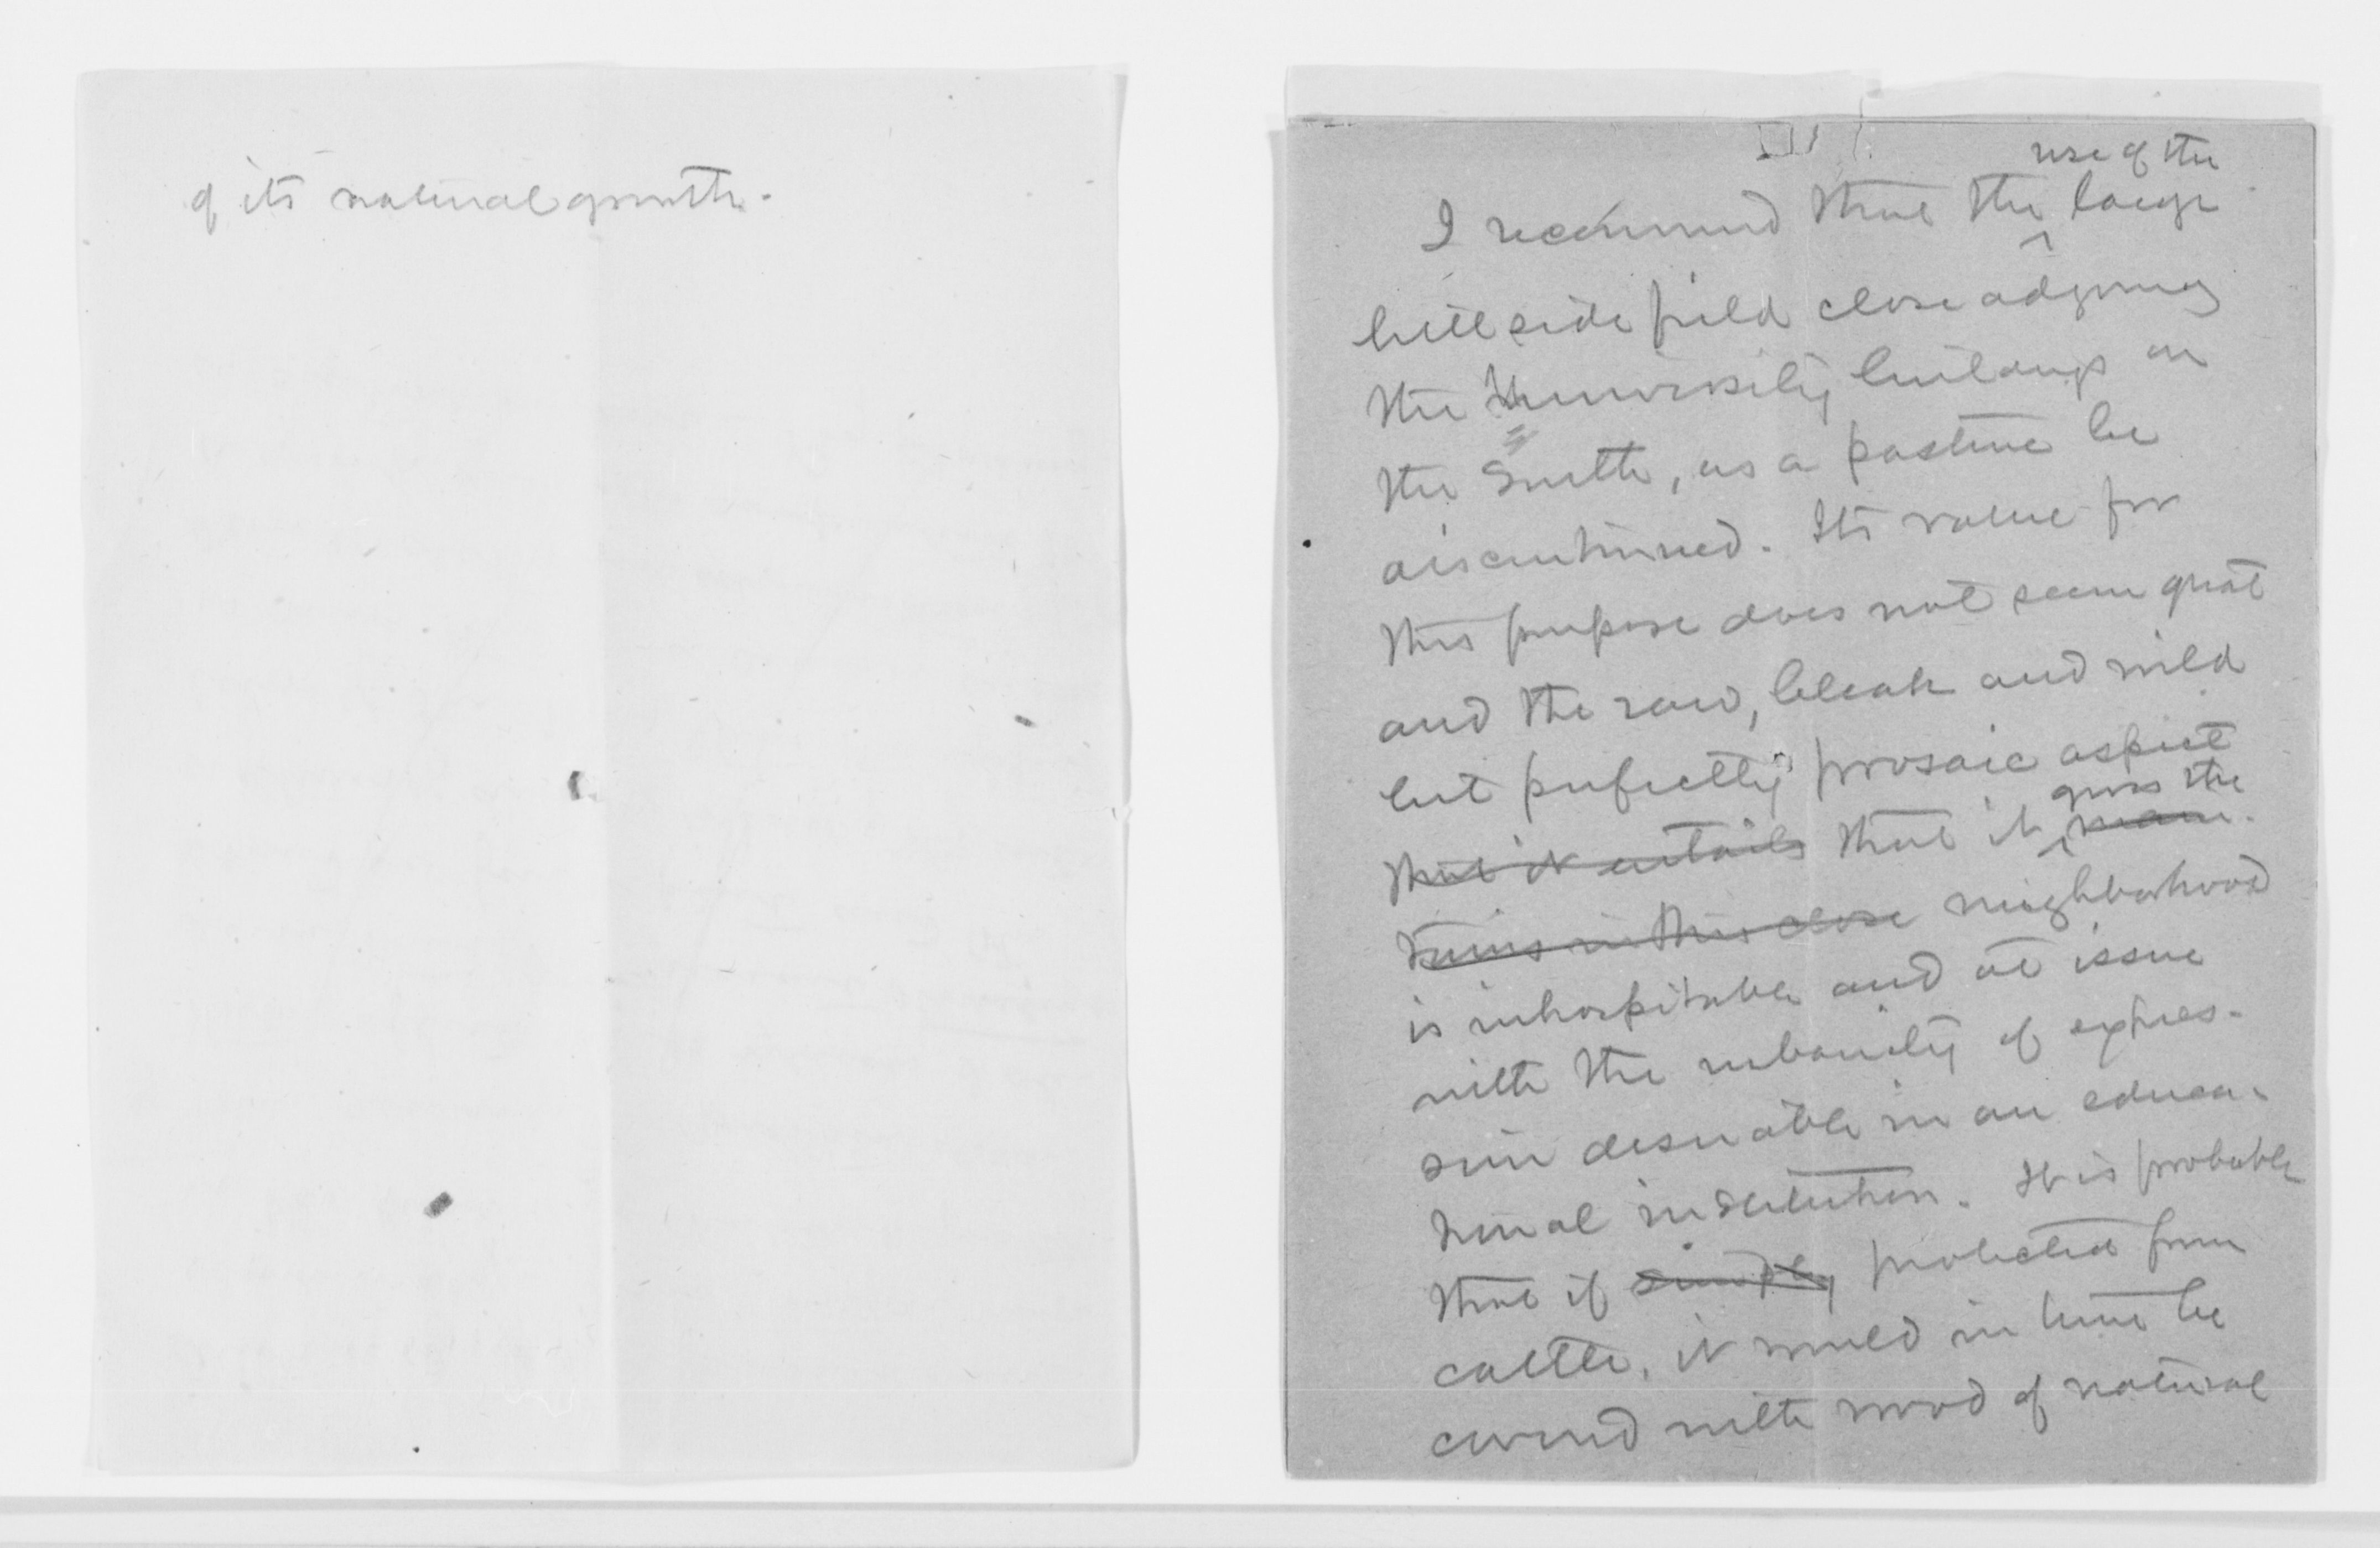 of its natural growth.
use of the
I recommend that the large
hill side field close adjoining
the University buildings on
the South, as a pasture be
discontinued. Its value for
this purpose does not seem great
and the raw, bleak and wild
but perfectly prosaic aspect
gives the
that it entails that it
in this close neighborhood
is inhospitable and at issue
with the urbanity of expres-
sion desirable in an educa-
tional institution. It is probable
that if simply protected from
cattle, it would in time be
covered with wood of natural